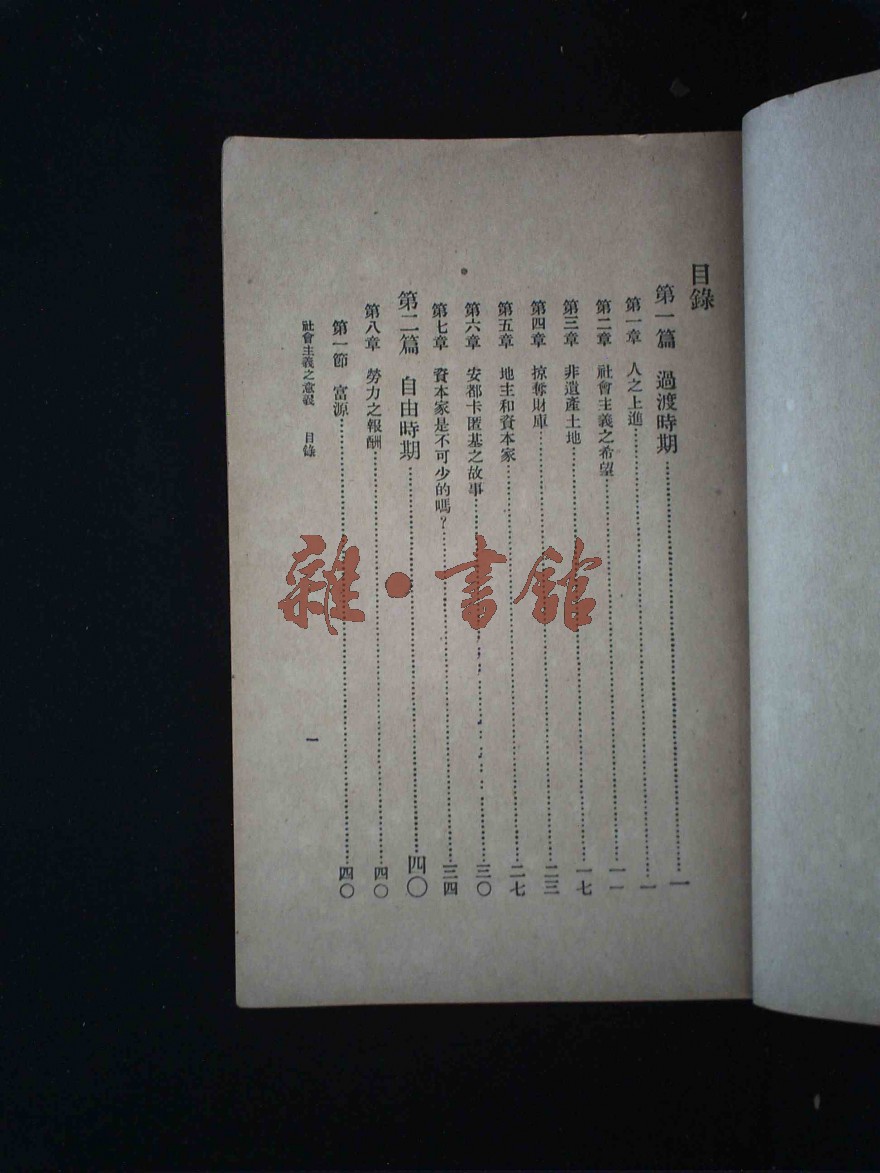 目錄
第一篇 過渡時期……一
第一章 人之上進……一
第二章 社會主義之希望……一一
第三章 非遺產土地……一七
第四章 掠奪財庫……二三
第五章 地主和資本家……二七
第六章 安都卡匿基之故事……三〇
第七章 資本家是不可少的嗎?……三四
第二篇 自由時期……四〇
第八章 勞力之報酬……四〇
第一節 富源……四〇
社會主義之意義 目錄 一
雜·書館